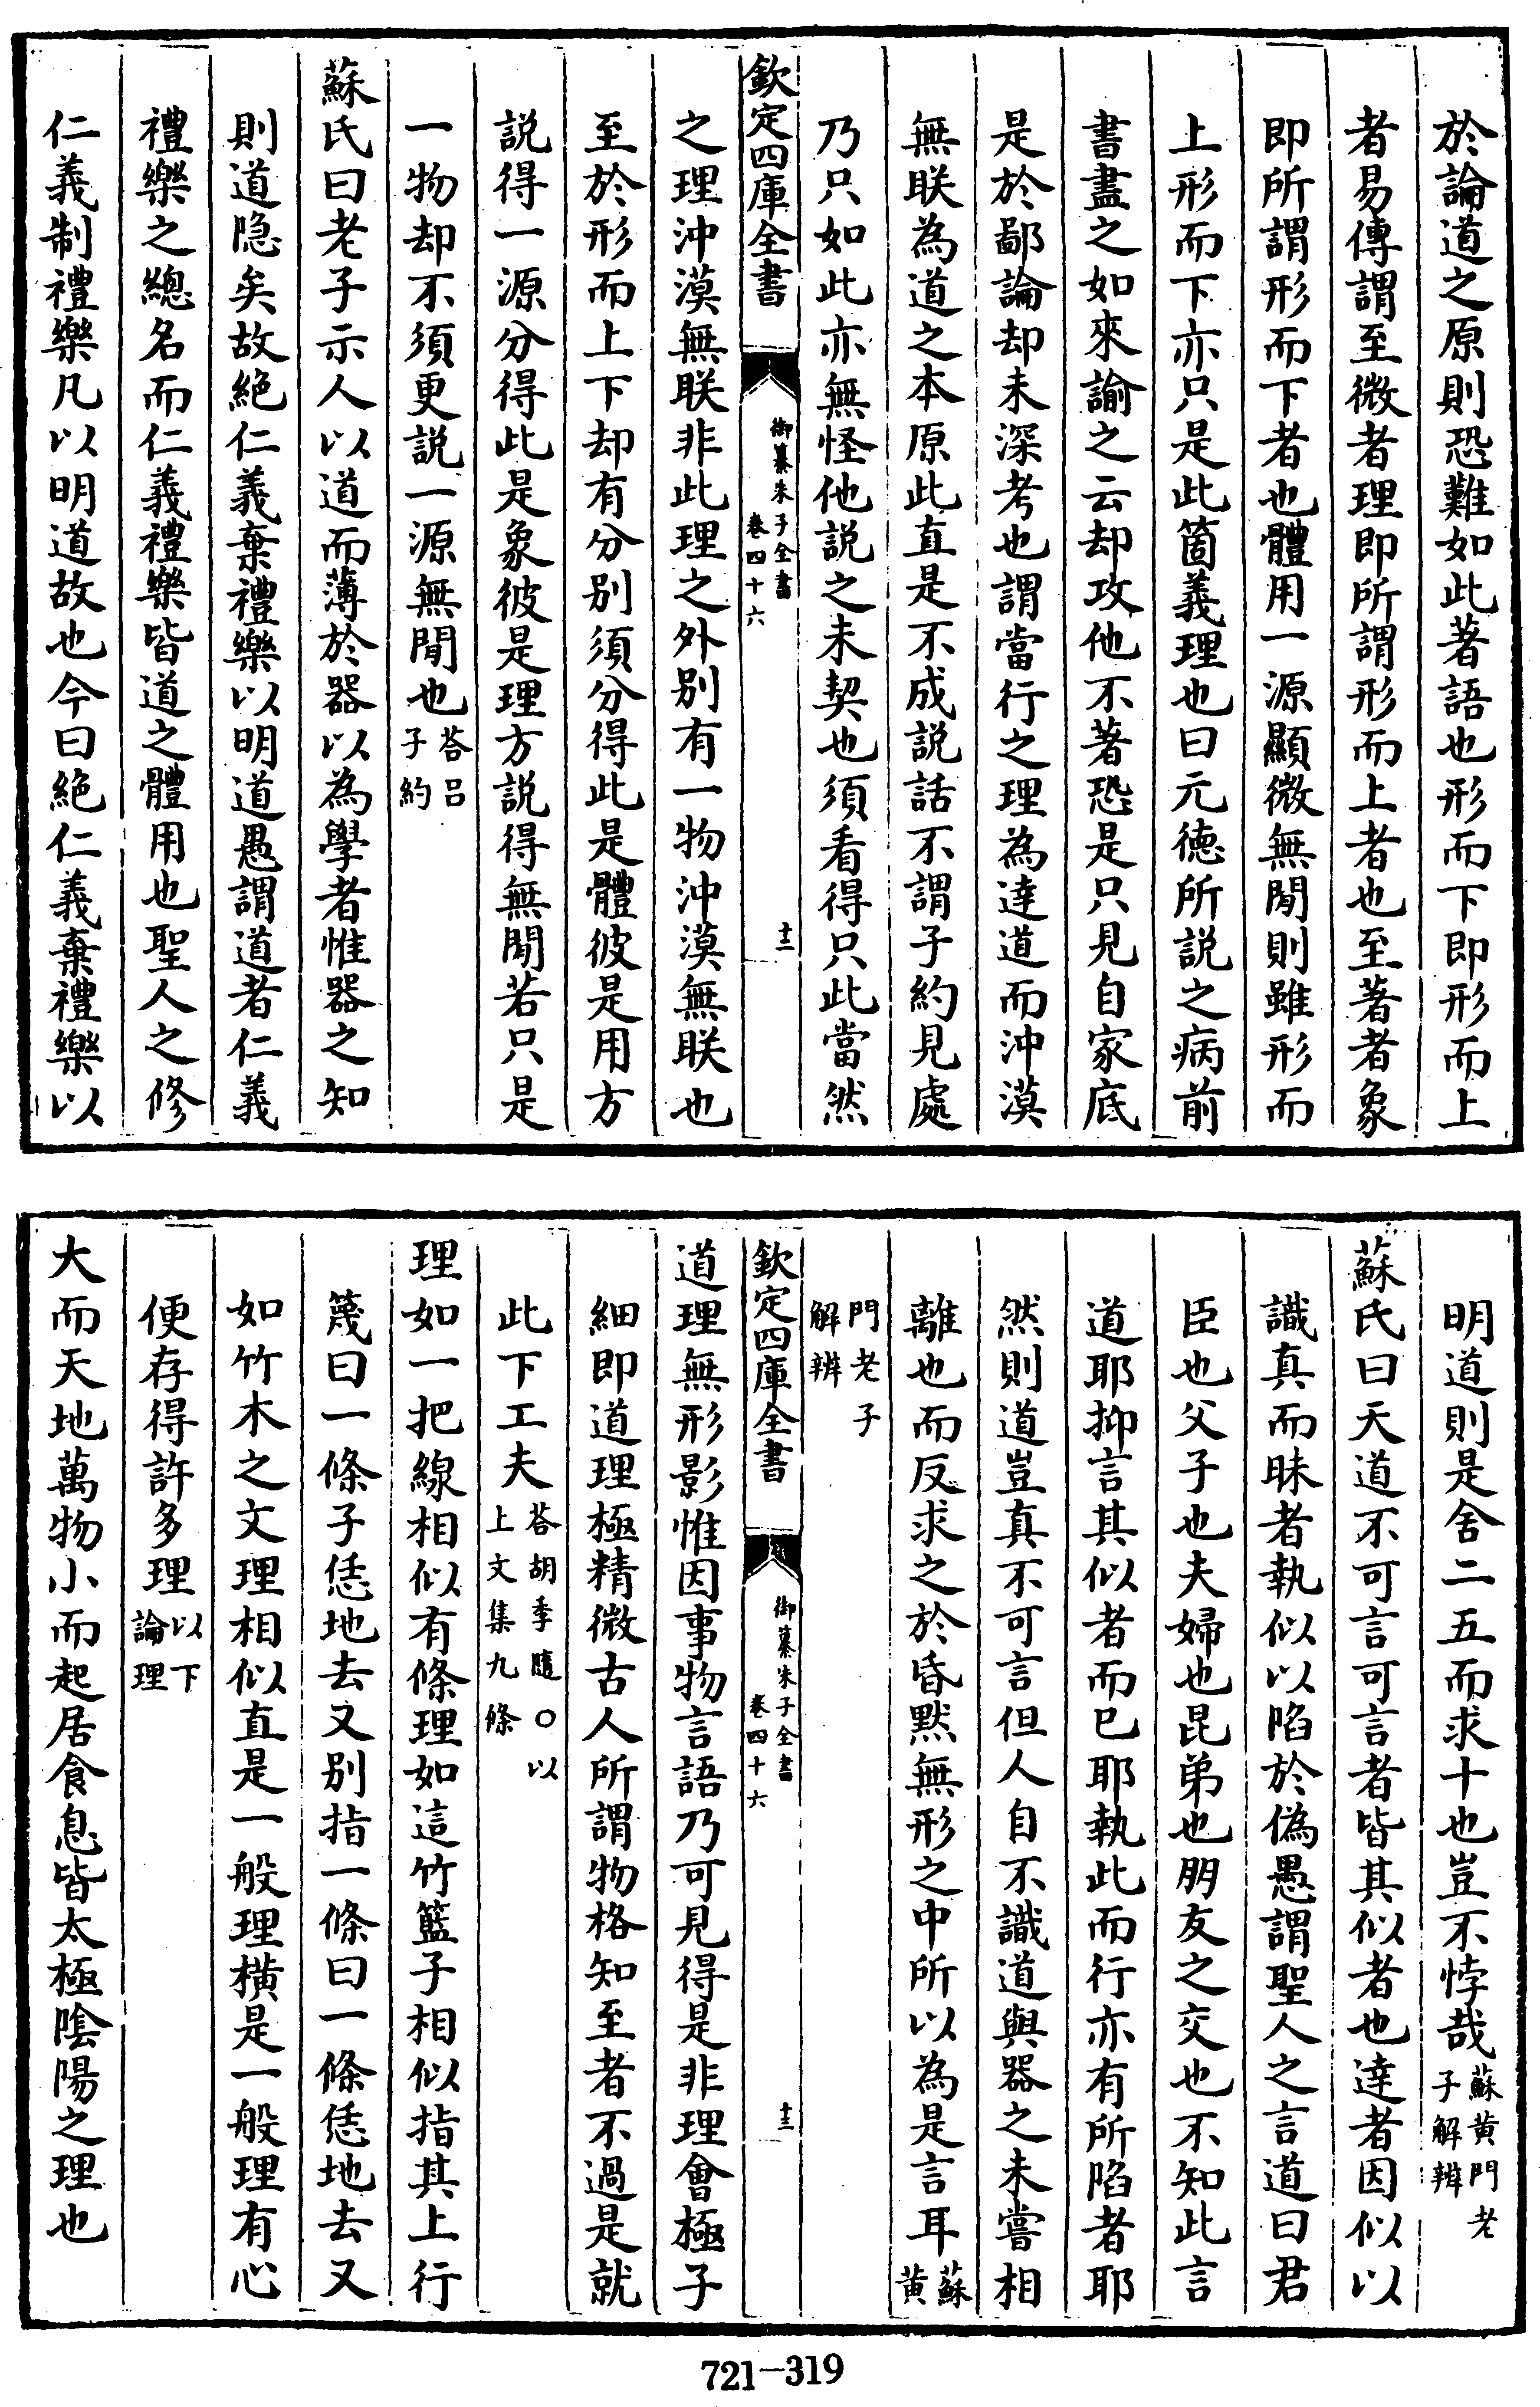 於論道之原則恐難如此著語也形而下即形而上
者易傳謂至微者理即所謂形而上者也至著者象
即所謂形而下者也體用一源顯微無閒則雖形而
上形而下亦只是此箇義理也曰元德所説之病前
書盡之如來諭之云却攻他不著恐是只見自家底
是於鄙論却未深考也謂當行之理為達道而沖漠
無联為道之本原此直是不成説話不謂子約見處
乃只如此亦無怪他説之未契也須看得只此當然
欽定四庫全書
御纂朱子全書
卷四十六
十二
之理沖漠無联非此理之外別有一物沖漠無联也
至於形而上下却有分別須分得此是體彼是用方
説得一源分得此是象彼是理方説得無閒若只是
一物却不須更説一源無閒也答吕子約
蘇氏曰老子示人以道而薄於器以為學者惟器之知
則道隐矣故絶仁義棄禮樂以明道愚謂道者仁義
禮樂之總名而仁義禮樂皆道之體用也聖人之修
仁義制禮樂凡以明道故也今曰絶仁義棄禮樂以
明道則是舍二五而求十也豈不悖哉蘇黄門老子解辨
蘇氏曰天道不可言可言者皆其似者也達者因似以
識真而昧者執似以陷於偽愚謂聖人之言道曰君
臣也父子也夫婦也昆弟也朋友之交也不知此言
道耶抑言其似者而已耶執此而行亦有所陷者耶
然則道豈真不可言但人自不識道與器之未嘗相
離也而反求之於昏黙無形之中所以為是言耳蘇黄
門老子解辨
欽定四庫全書
御纂朱子全書
卷四十六
十三
道理無形影惟因事物言語乃可見得是非理會極子
細即道理極精微古人所謂物格知至者不過是就
此下工夫答胡季隨○以上文集九條
理如一把線相似有條理如這竹籃子相似指其上行
篾曰一條子恁地去又別指一條曰一條恁地去又
如竹木之文理相似直是一般理横是一般理有心
便存得許多理以下論理
大而天地萬物小而起居食息皆太極陰陽之理也
721-319